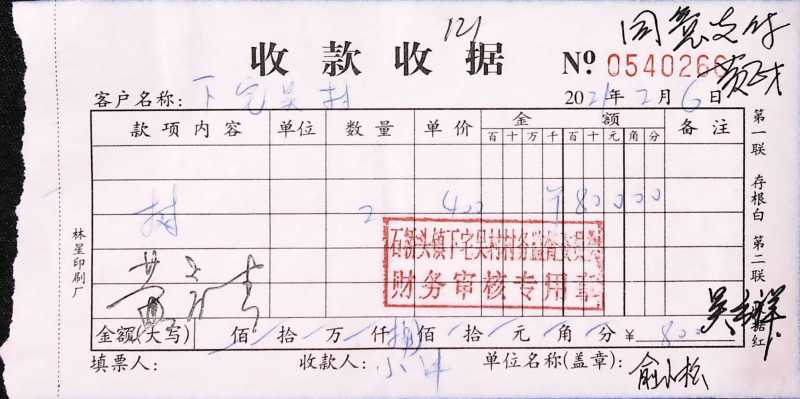 121
同意支付
收款收据 № 0540266
客户名称：下宅吴村 2021年2月6日
款项内容 单位 数量 单价 金额 备注
百十万千百十元角分
树 2 400 ¥80000
石 头镇下宅吴村村务监督委员会
财务审核专用章
金额(大写) 佰 拾 万 仟 捌 佰 拾 元 角 分 ¥ 800
填票人： 收款人： 单位名称(盖章)：
林星印刷厂
第一联 存根白 第二联 据红